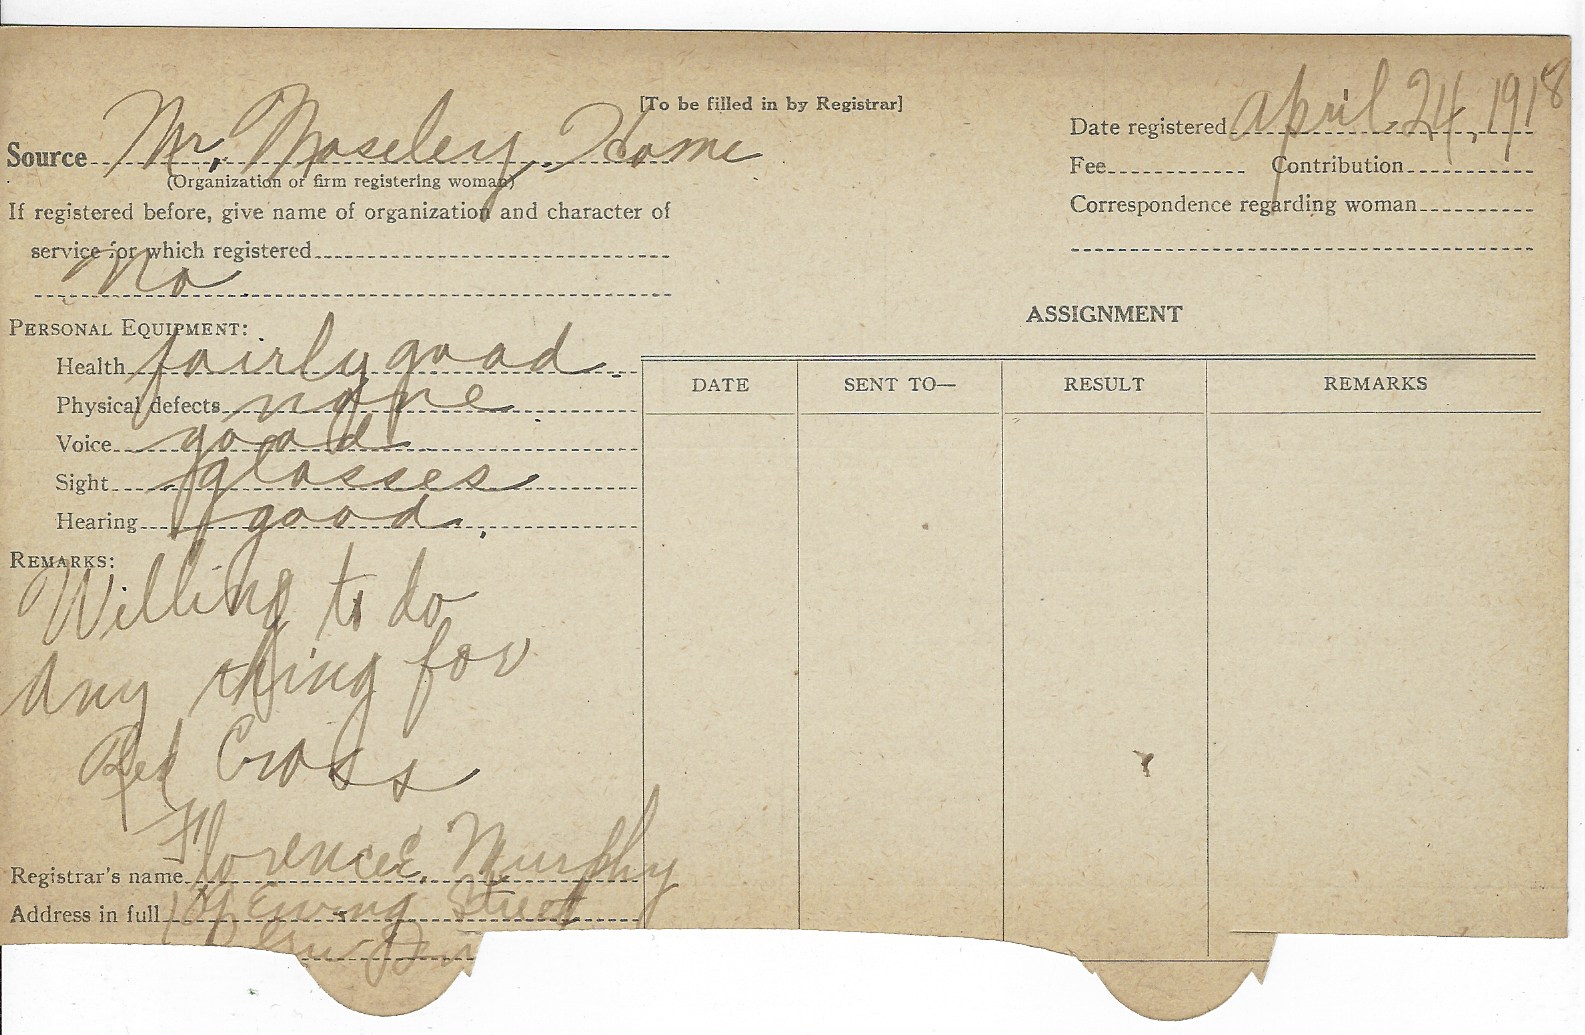 [To be filled in by Registrar]
Source Mr. Moseley Home
(Organization or firm registering woman)
If registered before, give name of organization and character of
service for which registered
No
Date registered April 24, 1918
Fee Contribution
Correspondence regarding woman
PERSONAL EQUIPMENT:
Health fairly good
Physical defects none
Voice good
Sight glasses
Hearing good
REMARKS:
Willing to do
any thing for
Red Cross
Registrar's name Florence E. Murphy
Address in full Ewing Street
ASSIGNMENT
DATE SENT TO— RESULT REMARKS